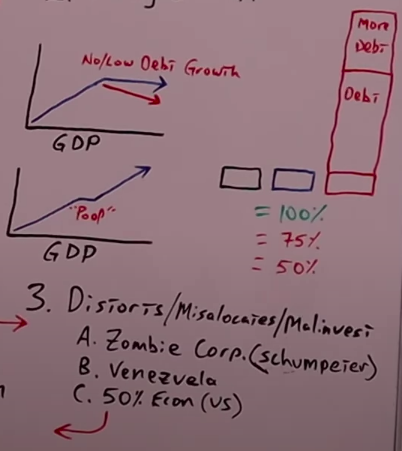 No/Low Debt Growth
GDP
"Poop"
GDP
More
Debt
Debt
= 100%
= 75%
= 50%
3. Distorts/Misalocates/Malinvest
A. Zombie Corp. (Schumpeter)
B. Venezuela
C. 50% Econ (US)